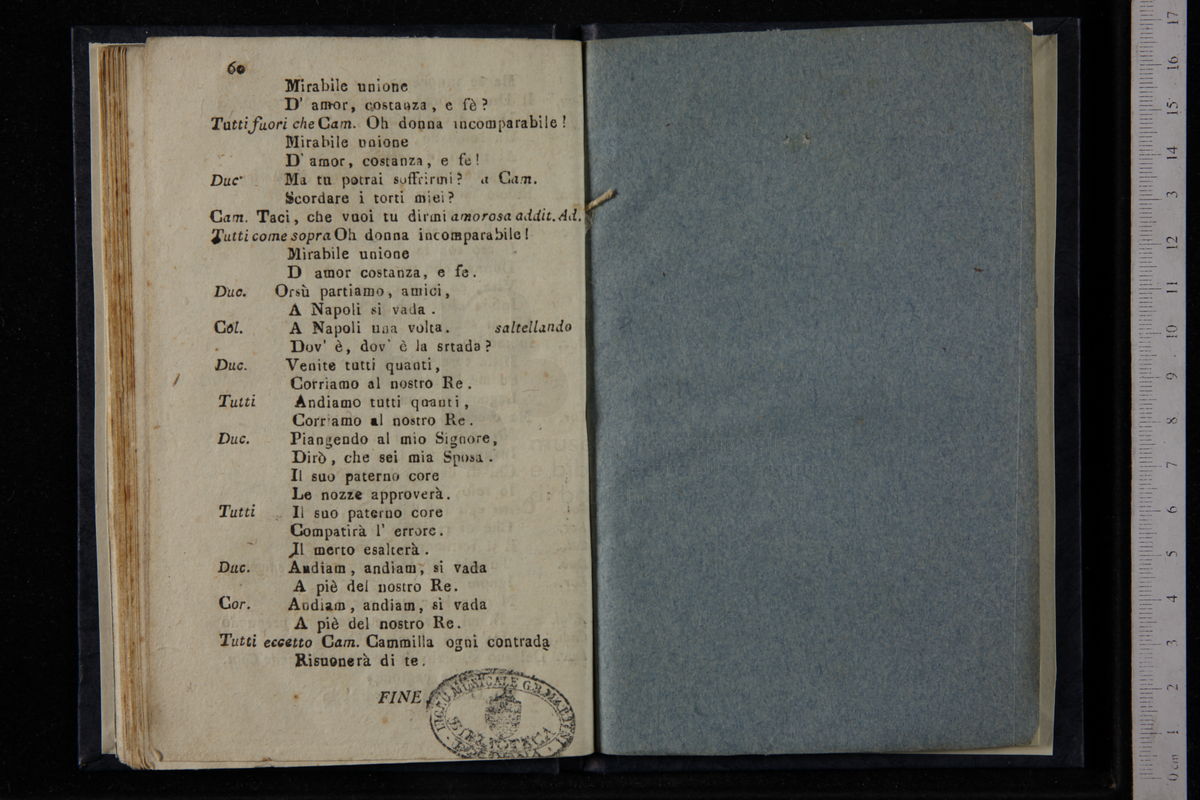 60
Mirabile unione
D' amor, costanza, e fè?
Tutti fuori che Cam. Oh donna incomparabile!
Mirabile unione
D' amor, costanza, e fe!
Duc. Ma tu potrai soffrirmi? a Cam.
Scordare i torti miei?
Cam. Taci, che vuoi tu dirmi amorosa addit. Ad.
Tutti come sopra Oh donna incomparabile!
Mirabile unione
D amor costanza, e fe.
Duc. Orsù partiamo, amici,
A Napoli si vada.
Col. A Napoli una volta. saltellando
Dov' è, dov' è la srtada?
Duc. Venite tutti quanti,
Corriamo al nostro Re.
Tutti Andiamo tutti quanti,
Corriamo al nostro Re.
Duc. Piangendo al mio Signore,
Dirò, che sei mia Sposa.
Il suo paterno core
Le nozze approverà.
Tutti Il suo paterno core
Compatirà l' errore.
Il merto esalterà.
Duc. Andiam, andiam, si vada
A piè del nostro Re.
Cor. Andiam, andiam, si vada
A piè del nostro Re.
Tutti eccetto Cam. Cammilla ogni contrada
Risuonerà di te.
FINE
LICEO MUSICALE G.B. MARTINI
BIBLIOTECA
0 cm 1 2 3 4 5 6 7 8 9 10 11 12 13 14 15 16 17